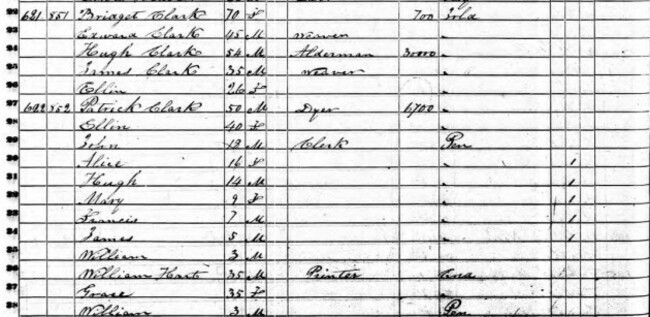 22 621 851 Bridget Clark 70 F 700 Irld
23 Edward Clark 45 M Weaver "
24 Hugh Clark 54 M Alderman 3000 "
25 James Clark 35 M Weaver "
26 Ellin 26 F "
27 622 852 Patrick Clark 50 M Dyer 1,700 "
28 Ellin 40 F "
29 John 18 M Clerk Pen
30 Alice 16 F " 1
31 Hugh 14 M " 1
32 Mary 9 F " 1
33 Francis 7 M " 1
34 James 5 M " 1
35 William 3 M "
36 William Hart 35 M Printer
37 Grace 35 F "
38 William 3 M Pen